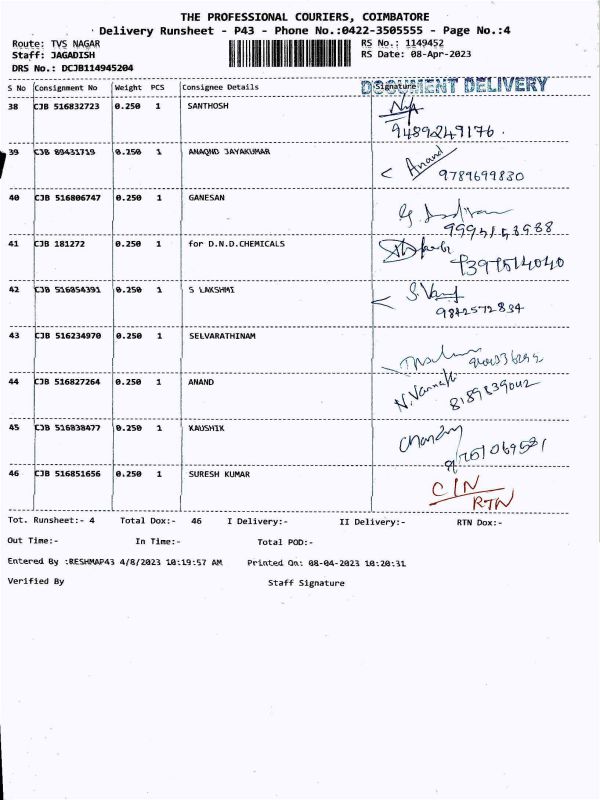 THE PROFESSIONAL COURIERS, COIMBATORE
Delivery Runsheet - P43 - Phone No.:0422-3505555 - Page No.:4
Route: TVS NAGAR RS No.: 1149452
Staff: JAGADISH RS Date: 08-Apr-2023
DRS No.: DCJB114945204
DOCUMENT DELIVERY
S No Consignment No Weight PCS Consignee Details Signature
38 CJB 516832723 0.250 1 SANTHOSH
9489249176.
39 CJB 89431719 0.250 1 ANAQND JAYAKUMAR Anand
9789699830
40 CJB 516806747 0.250 1 GANESAN
41 CJB 181272 0.250 1 for D.N.D.CHEMICALS
42 CJB 516854391 0.250 1 S LAKSHMI
9842572834
43 CJB 516234970 0.250 1 SELVARATHINAM
44 CJB 516827264 0.250 1 ANAND
8189839042
45 CJB 516838477 0.250 1 KAUSHIK
46 CJB 516851656 0.250 1 SURESH KUMAR C/N
RTN
Tot. Runsheet:- 4 Total Dox:- 46 I Delivery:- II Delivery:- RTN Dox:-
Out Time:- In Time:- Total POD:-
Entered By :RESHMAP43 4/8/2023 10:19:57 AM Printed On: 08-04-2023 10:20:31
Verified By Staff Signature